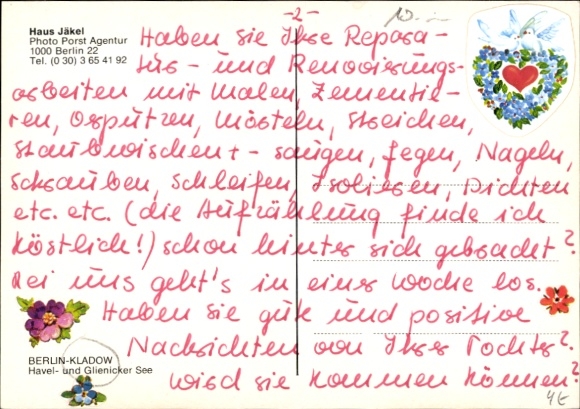 -2-
Haus Jäkel
Photo Porst Agentur
1000 Berlin 22
Tel. (0 30) 3 65 41 92
Haben sie Ihre Repara-
tur- und Renovierungs-
arbeiten mit Malen, Zementie-
ren, Verputzen, Mörteln, Streichen,
Staubwischen + -saugen, fegen, Nageln,
Schrauben, Schleifen, Isolieren, Dichten
etc. etc. (die Aufzählung finde ich
köstlich!) schon hinter sich gebracht?
Bei uns geht's in einer Woche los.
Haben sie gute und positive
Nachrichten von Ihrer Tochter?
Wird sie kommen können?
BERLIN-KLADOW
Havel- und Glienicker See
4€